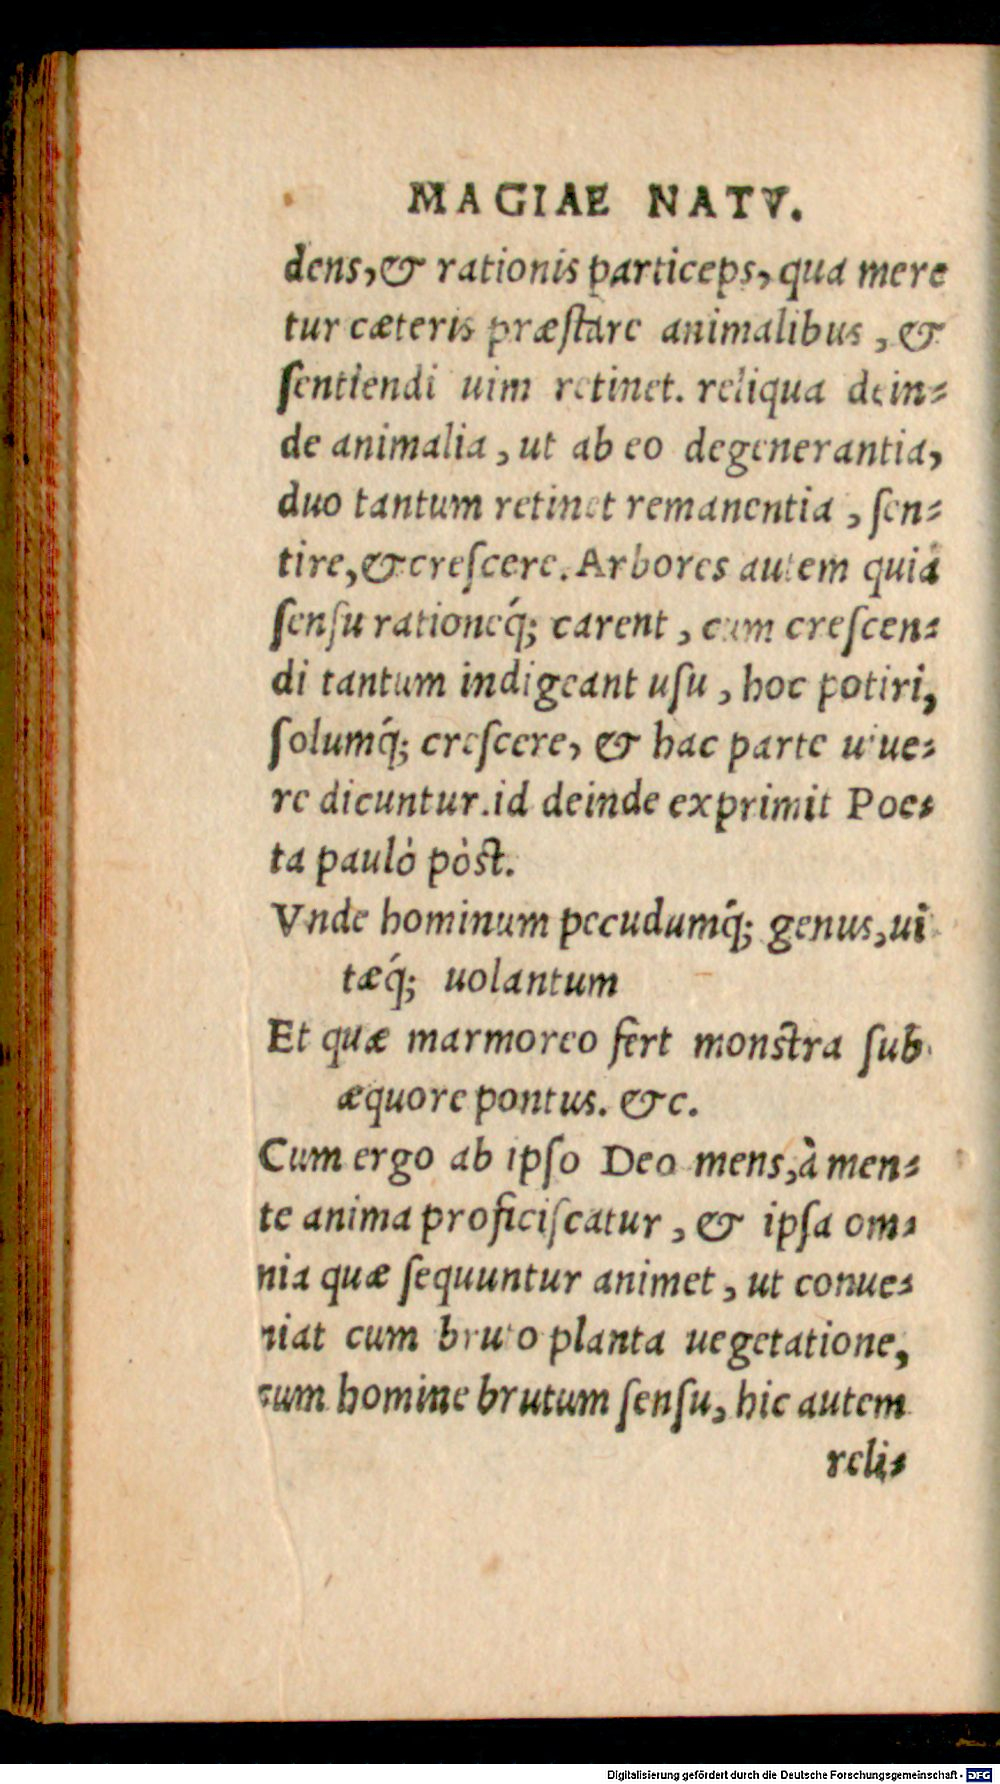 MAGIAE NATV.
dens,& rationis particeps, qua mere
tur cæteris præſtare animalibus , &
ſentiendi uim retinet. reliqua dein⸗
de animalia , ut ab eo degenerantia,
duo tantum retinet remanentia , ſen⸗
tire,& creſcere. Arbores autem quia
ſenſu rationeq́; carent , cum creſcen⸗
di tantum indigeant uſu , hoc potiri,
ſolumq́; creſcere, & hac parte uiue⸗
re dicuntur.id deinde exprimit Poe⸗
ta paulò pòst.
Vnde hominum pecudumq́; genus,ui
tæq́; uolantum
Et quæ marmoreo fert monstra ſub
æquore pontus. &c.
Cum ergo ab ipſo Deo mens,à men⸗
te anima proficiſcatur , & ipſa om⸗
nia quæ ſequuntur animet , ut conue⸗
niat cum bruto planta uegetatione,
cum homine brutum ſenſu, hic autem
reli⸗
Digitalisierung gefördert durch die Deutsche Forschungsgemeinschaft - DFG